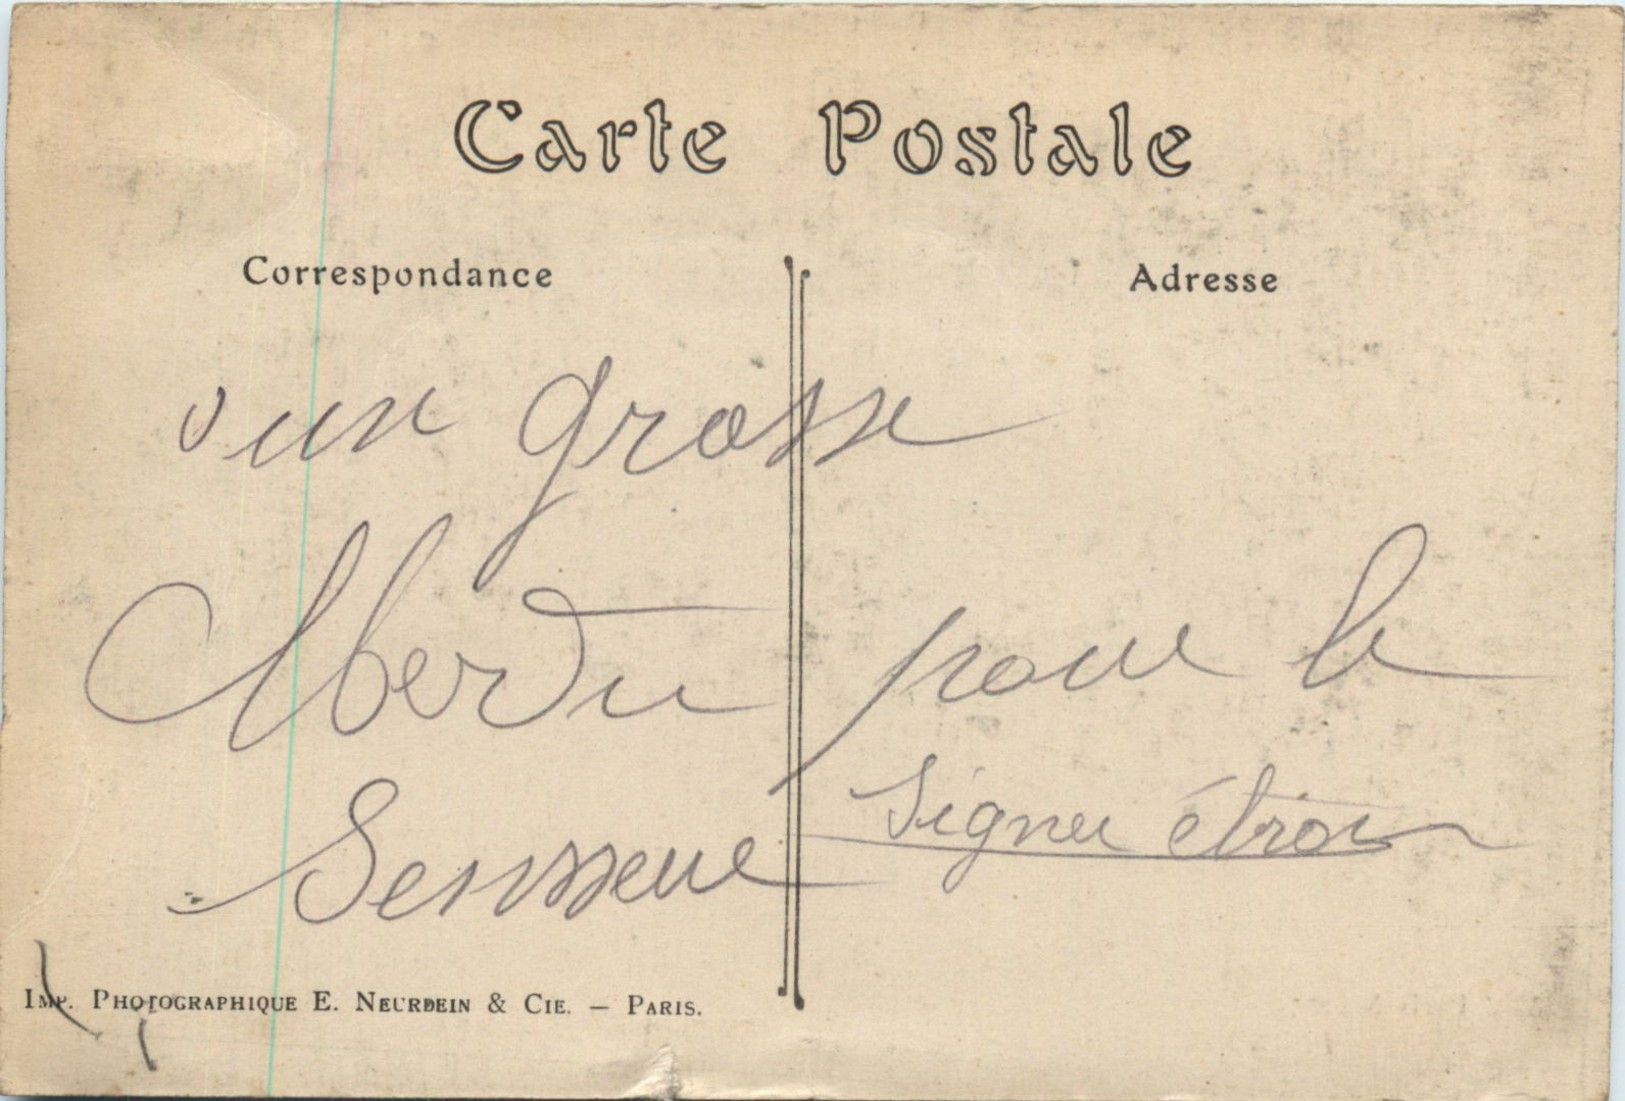 Carte Postale
Correspondance
Adresse
un grosse
pour le
signer étroi
IMP. PHOTOGRAPHIQUE E. NEURDEIN & CIE. — PARIS.